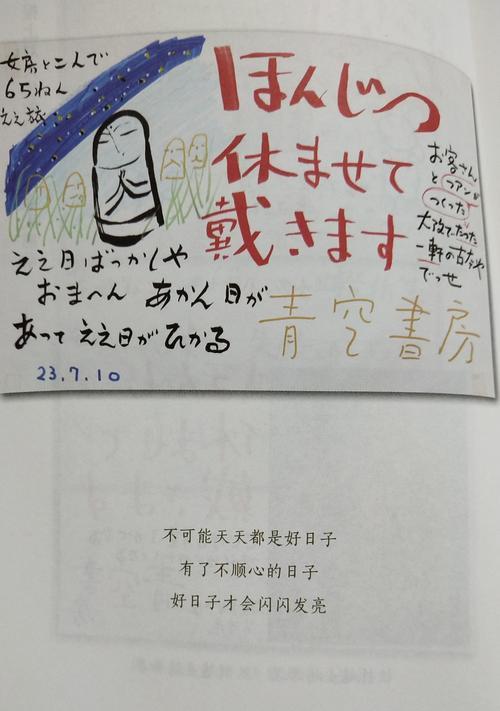 女房とこんで
65ねん
ええ旅
ほんじつ
休ませて
戴きます
お客さんと
ファンが
つくった
大阪でたった
一軒の古本や
でっせ
ええ日ばっかしや
おまへん あかん日が
あって ええ日がひかる
青空書房
23.7.10
不可能天天都是好日子
有了不顺心的日子
好日子才会闪闪发亮